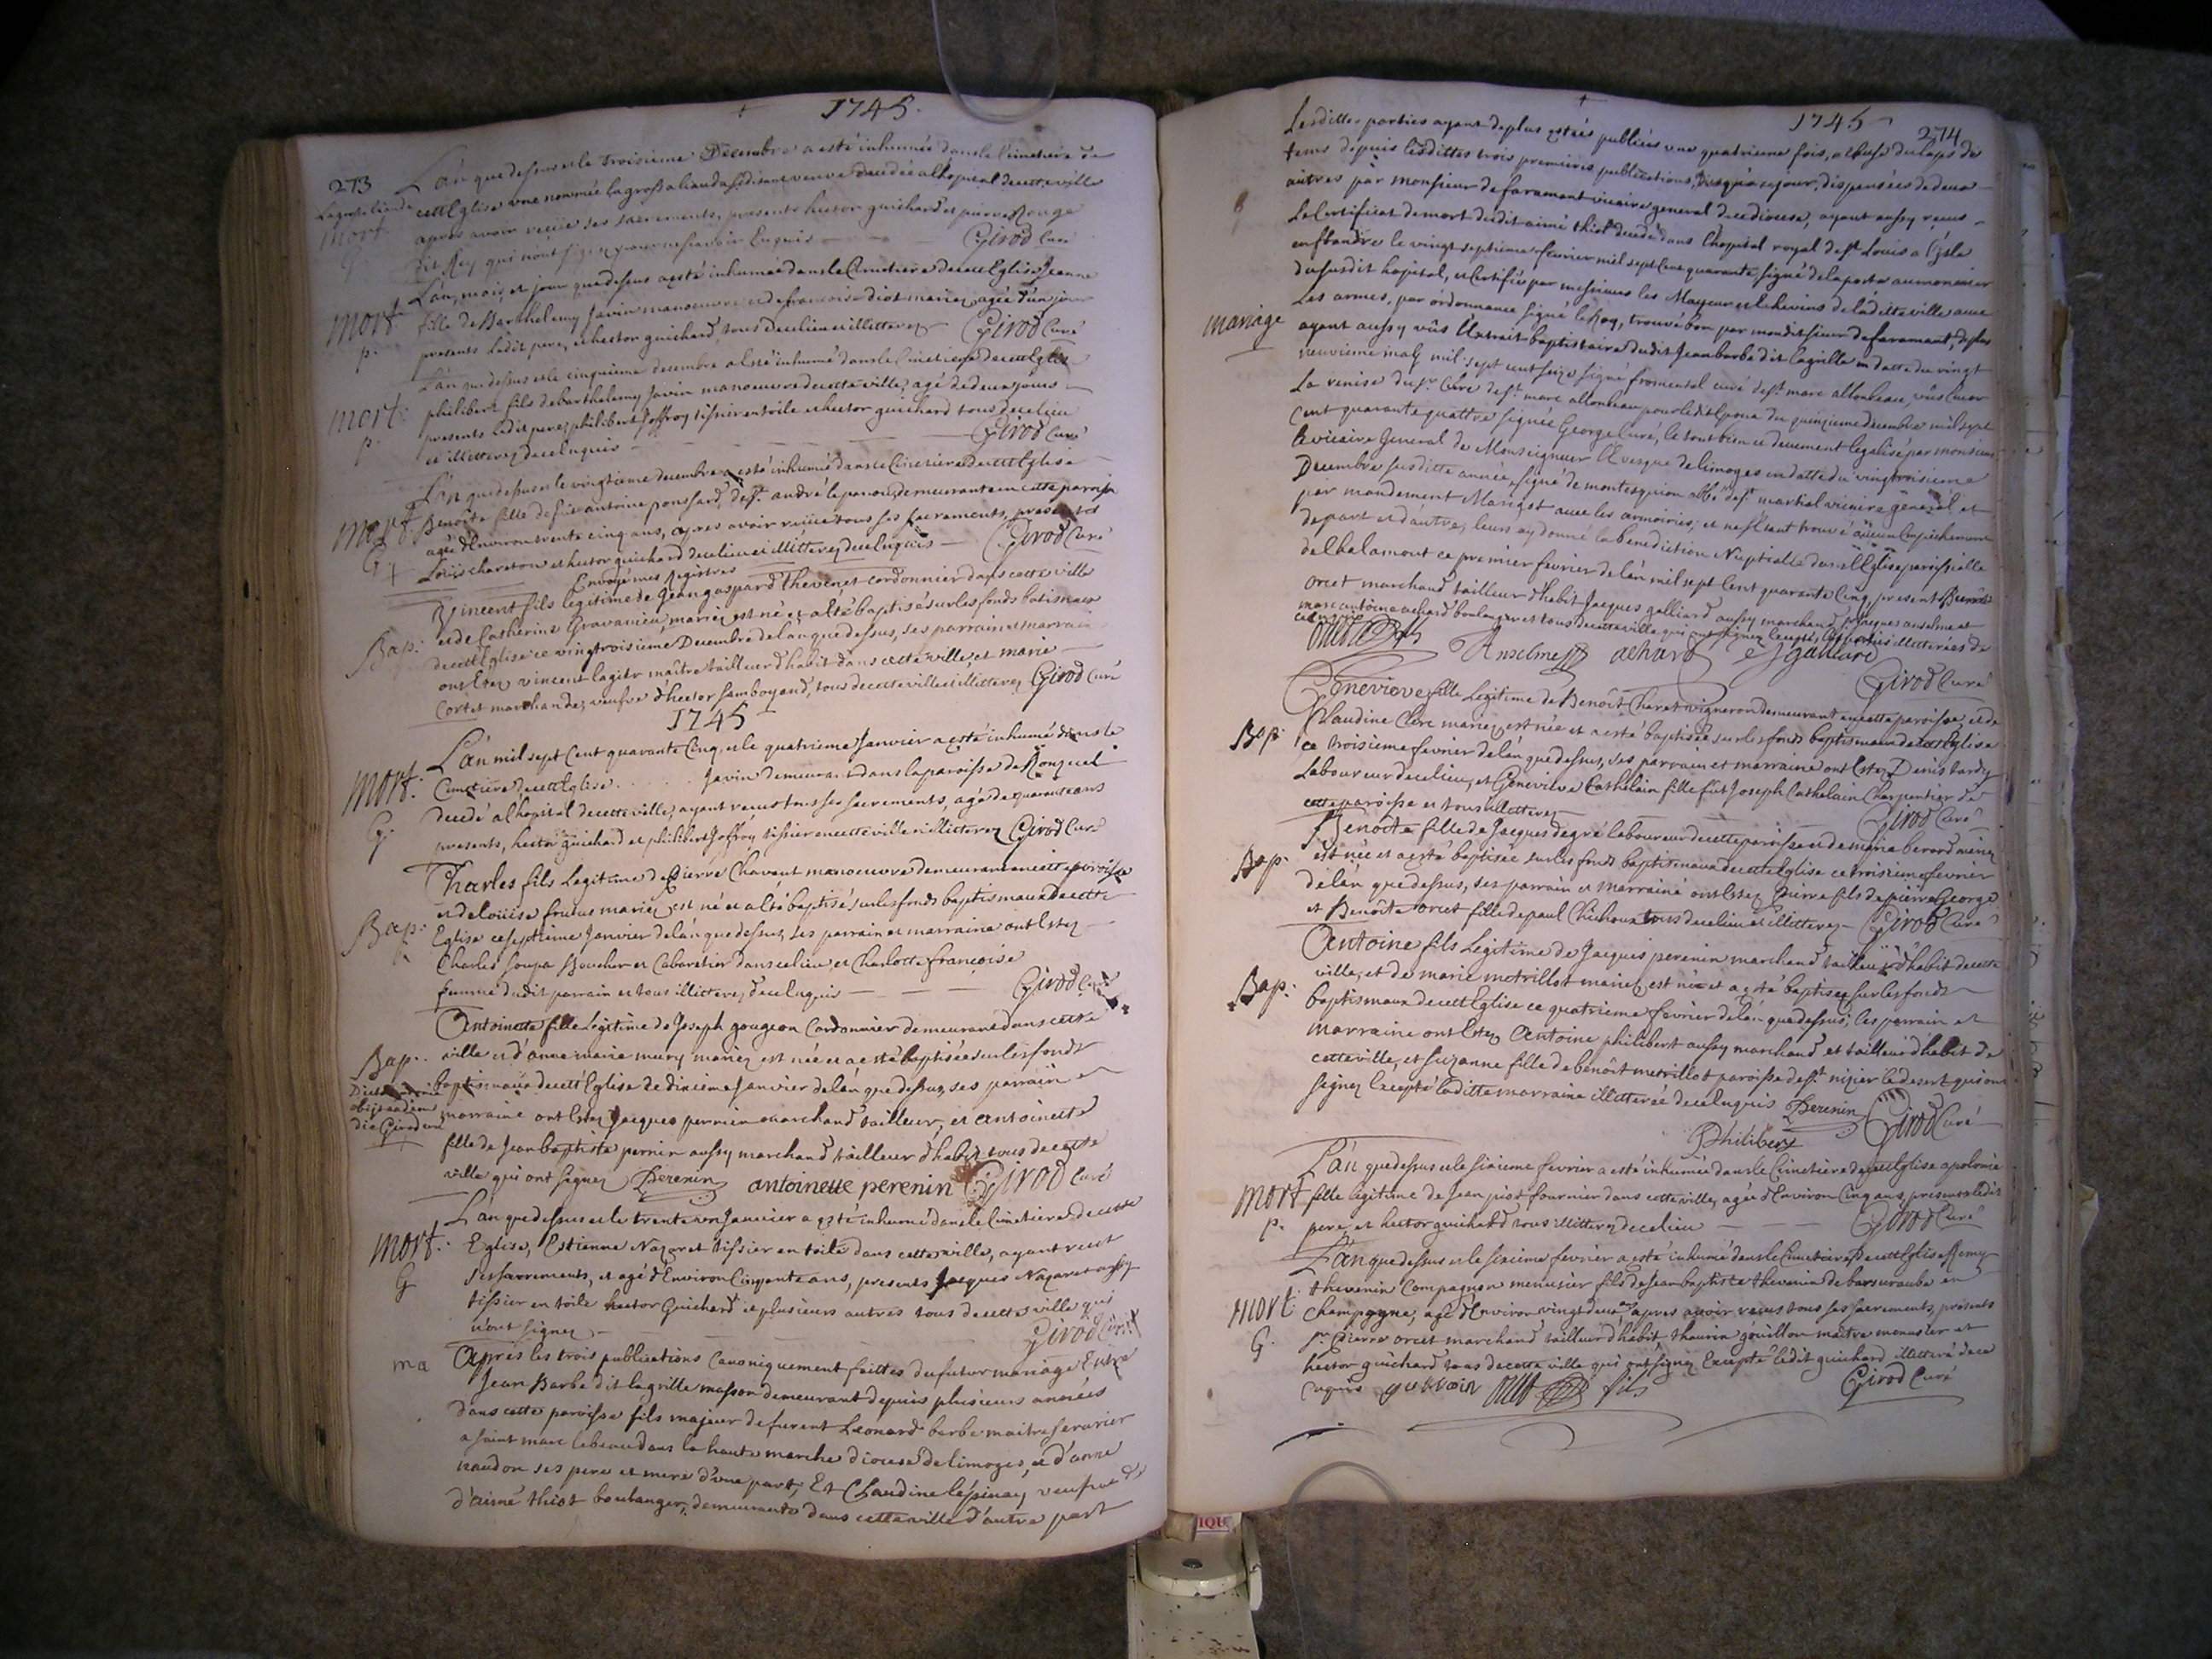 1745.
273
L'an que dessus et le troisieme Decembre a esté inhumée dans le Cimetiere de
cette Eglise une nommée la grosse liauda se disant veuve decedée a l'hopital de cette ville
apres avoir reciie ses sacrements, presents hector guichard et pierre Rouge
dit Rey qui n'ont signez pour ne sçavoir Enquis Girod Curé
la grosse liauda
Mort
L'an, mois, et jour que dessus a esté inhumée dans le Cimetiere de cette Eglise Jeanne
fille de Barthelemy Javin manoeuvre et de francoise diot mariez agée d'un jour
presents ledit pere, et hector guichard, tous de ce lieu et illitterez Girod Curé
Mort
p.
L'an que dessus et le cinquieme decembre a esté inhumé dans le Cimetiere de cette Eglise
philibert fils de barthelemy Javin manoeuvre de cette ville, agé de deux jours
presents ledit pere, philibert Joffroy tissier en toile et hector guichard tous de ce lieu
et illitterez de ce Enquis Girod Curé
Mort:
p.
L'an que dessus et le vingtieme decembre a esté inhumé dans le Cimetiere de cette Eglise
Benoite fille de feu antoine ponssard, de st. andré le panoux, demeurante en cette paroisse
agée d'Environ trente cinq ans, apres avoir reciie tous ses sacrements, presents
Loüis chareton et hector guichard de ce lieu et illitterez de ce Enquis Girod Curé
Mort
G
Envoyé mes Registres
Vincent fils legitime de Jean gaspard Thevenet cordonnier dans cette ville
et de Catherine Gravanieu, mariez est né et a esté baptisé sur les fonds batismaux
de cette Eglise ce vingt troisieme Decembre de l'an que dessus, ses parrain et marraine
ont Estez vincent lagitr maitre tailleur d'habit dans cette ville, et marie
Cortet marchandez veufve d'hector Samboyand, tous de cette ville et illitterez Girod Curé
Bap:
1745
L'an mil sept Cent quarante Cinq, et le quatrieme Janvier a esté inhumé dans le
Cimetiere de cette Eglise . . . . . Javin demeurant dans la paroisse de Ronzuel
decedé a l'hopital de cette ville, ayant recus tous ses sacrements, agé de quarante ans
presents, hector guichard et philibert Joffroy tissier en cette ville et illitterez Girod Curé
Mort.
G.
Charles fils Legitime de Pierre Chavent manoeuvre demeurant en cette paroisse
et de loüise frutus mariez est né et a esté baptisé sur les fonds baptismaux de cette
Eglise ce septieme Janvier de l'an que dessus, ses parrain et marraine ont Estez
Charles Soupa Boucher et Cabaretier dans ce lieu et Charlotte francoise
femme dudit parrain et tous illitterez de ce Enquis Girod Curé
Bap:
Antoinette fille Legitime de Joseph gougeon Cordonnier demeurant dans cette
ville et d'anne marie mury mariez est née et a esté baptisée sur les fonds
baptismaux de cette Eglise le dixieme Janvier de l'an que dessus, ses parrain et
marraine ont Estez Jacques pernin marchand tailleur, et antoinette
fille de Jean baptiste pernin aussy marchand tailleur d'habit tous de cette
ville qui ont signez Perenin antoinette perenin Girod Curé
Bap:
L'an que dessus et le trente un Janvier a esté inhumé dans le Cimetiere de cette
Eglise, Estienne Nazaret tissier en toile dans cette ville, ayant recut
ses sacrements, et agé d'Environ Cinquante ans, presents Jacques Nazaret aussy
tissier en toile hector Guichard et plusieurs autres tous de cette ville qui
n'ont signez Girod Curé
Mort:
G
Apres les trois publications Canoniquement faittes du futur mariage Entre
Jean Barbe dit lagrille masson demeurant depuis plusieurs années
dans cette paroisse fils majeur de furent Leonard barbe maitre serurier
a saint marc lebeau dans la haute marche diocese de limoges, et d'anne
naudon ses pere et mere d'une part, Et Claudine lespinay veufve
d'aimé thiot boulanger, demeurante dans cette ville d'autre part
ma
1745
274
Lesdittes parties ayant de plus estées publiées une quatrieme fois, a cause du laps de
tems depuis lesdittes trois premieres publications, jusqu'a ce jour, dispensées de deux
autres par Monsieur de faramant vicaire general de ce diocese, ayant aussy reçus
le Certificat de mort dudit aimé thiot decedé dans l'hopital royal de st Louis a l'isle
en flandre le vingt septieme fevrier mil sept Cent quarante signé delaporte aumonier
du susdit hopital, et Certifié par messieurs les Mayeur et Echevins de laditte ville avec
les armes, par ordonnance signé leRoy, trouvé bon par mondit sieur de faramant, de plus
ayant aussy vûs l'Extrait baptistaire dudit Jean barbe dit lagrille en datte du vingt
neuvieme may mil sept cent seize signé fromental curé de st. marc allonbeau, vûs encor
La remise du sr. Curé de st. marc allonbeau pour ledit Epoux du quinzieme decembre mil sept
Cent quarante quattre signée George Curé, le tout bien et deuement legalisé par monsieur
le vicaire General de Monseigneur L'Evesque de limoges en datte du vingt troisieme
Decembre susditte année, signé de montesquiou abbé de st martial vicaire general et
par mandement Marigot avec les armoiries; et ne s'Etant trouvé aucun Empechement
de part et d'autre; leurs ay donné la benediction Nuptialle dans l'Eglise paroissialle
de Chalamont ce premier fevrier de l'an mil sept Cent quarante Cinq, presents Pierre
orcet marchand tailleur d'habit Jacques galliard aussy marchand, Jacques anselme et
marc antoine achard boulanger et tous de cette ville qui ont signez Enquis, les parties illitterées de
ce Enquis
orcet fils Anselme achard J galliard
Girod Curé
mariage
Genevieve fille Legitime de Benoit Charet vigneron demeurant en cette paroisse, et de
Claudine Clere mariez est née et a esté baptisée sur les fonds baptismaux de cette Eglise
ce troisieme fevrier de l'an que dessus, ses parrain et marraine ont Estez Denis bardy
Laboureur de ce lieu, et Genevieve Cathelain fille feüt Joseph Cathelain Charpentier de
cette paroisse et tous illitterez Girod Curé
Bap:
Benoite fille de Jacques degré laboureur de cette paroisse et de marie berard mariez
est née et a esté baptisée sur les fonds baptismaux de cette Eglise ce troisieme fevrier
de l'an que dessus, ses parrain et marraine ont Estez Pierre fils de pierre George
et Benoite orcet fille de paul Chichoux tous de ce lieu et illitterez Girod Curé
Bap:
Antoine fils Legitime de Jacques perenin marchand tailleur d'habit de cette
ville, et de marie metrillot mariez est né et a esté baptisez sur les fonds
baptismaux de cette Eglise ce quatrieme fevrier de l'an que dessus; les parrain et
marraine ont Estez Antoine philibert aussy marchand et tailleur d'habit de
cette ville, et Suzanne fille de benoit metrillot paroisse de st nizier le desert qui ont
signez Excepté laditte marraine illitterée de ce Enquis Perenin Girod Curé
Philibert
Bap:
L'an que dessus et le sixieme fevrier a esté inhumée dans le Cimetiere de cette Eglise apolonie
fille legitime de Jean piot fournier dans cette ville, agée d'Environ Cinq ans, presents ledit
pere, et hector guichard tous illitterez de ce lieu Girod Curé
Mort
p.
L'an que dessus et le sixieme fevrier a esté inhumé dans le Cimetiere de cette Eglise Remy
thevenin Compagnon menusier fils de Jean baptiste thevenin de bar sur aube en
Champagne, agé d'Environ vingt deux ans, apres avoir recus tous ses sacrements, presents
sr. Pierre orcet marchand tailleur d'habit thaurin gouillon maitre menusier et
hector guichard tous de cette ville qui ont signez Excepté ledit guichard illitteré de ce
Enquis orcet fils Girod Curé
Mort:
G.